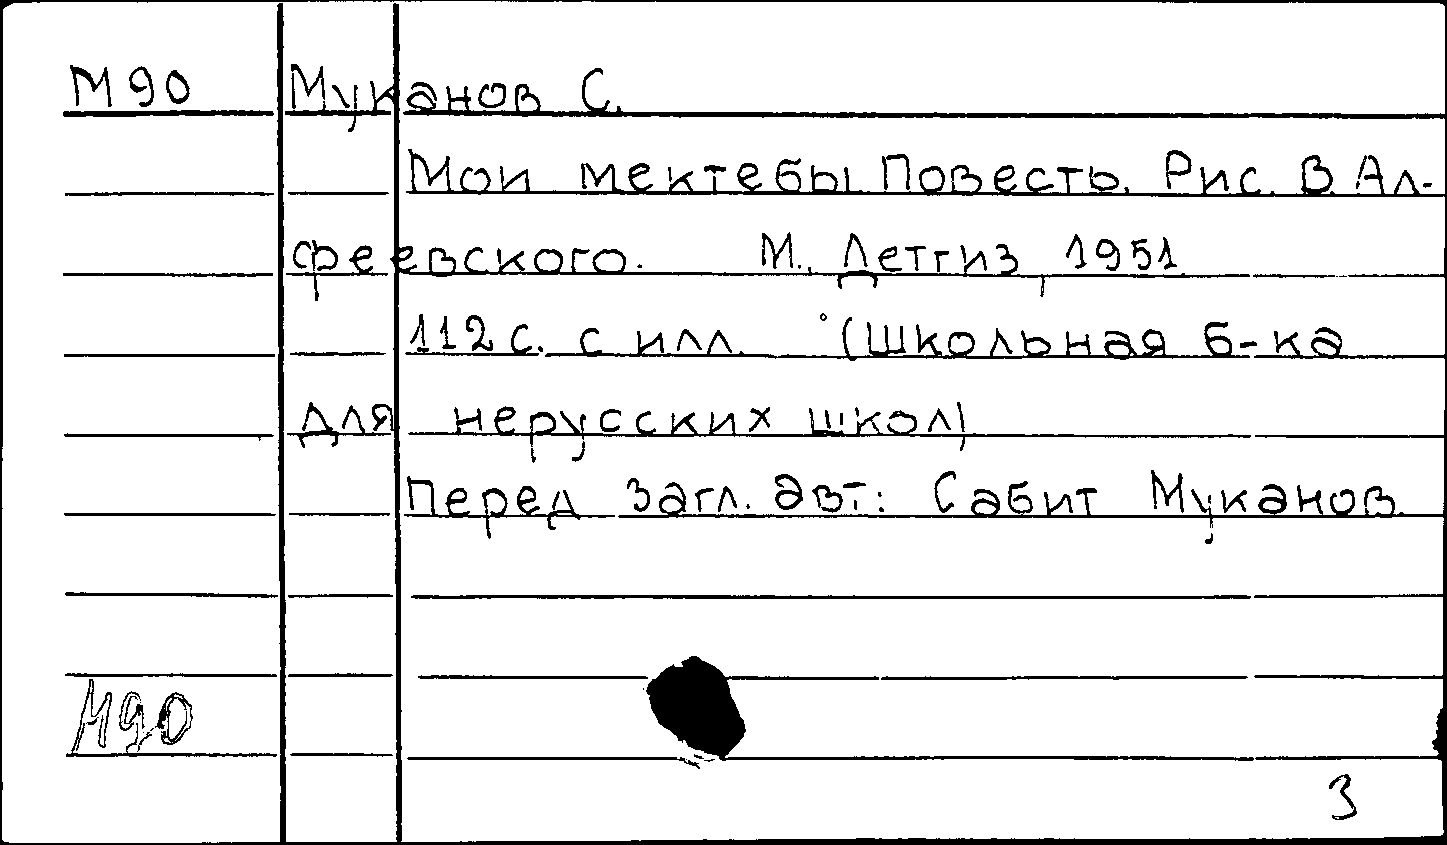 М90 Муканов С.
Мои мектебы. Повесть. Рис. В. Ал-
феевского. М., Детгиз, 1951
112 с. с илл. (Школьная б-ка
для нерусских школ)
Перед загл. авт.: Сабит Муканов.
М90
3